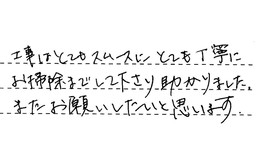 工事はとてもスムーズに とても丁寧に
お掃除までして下さり助かりました。
またお願いしたいと思います。